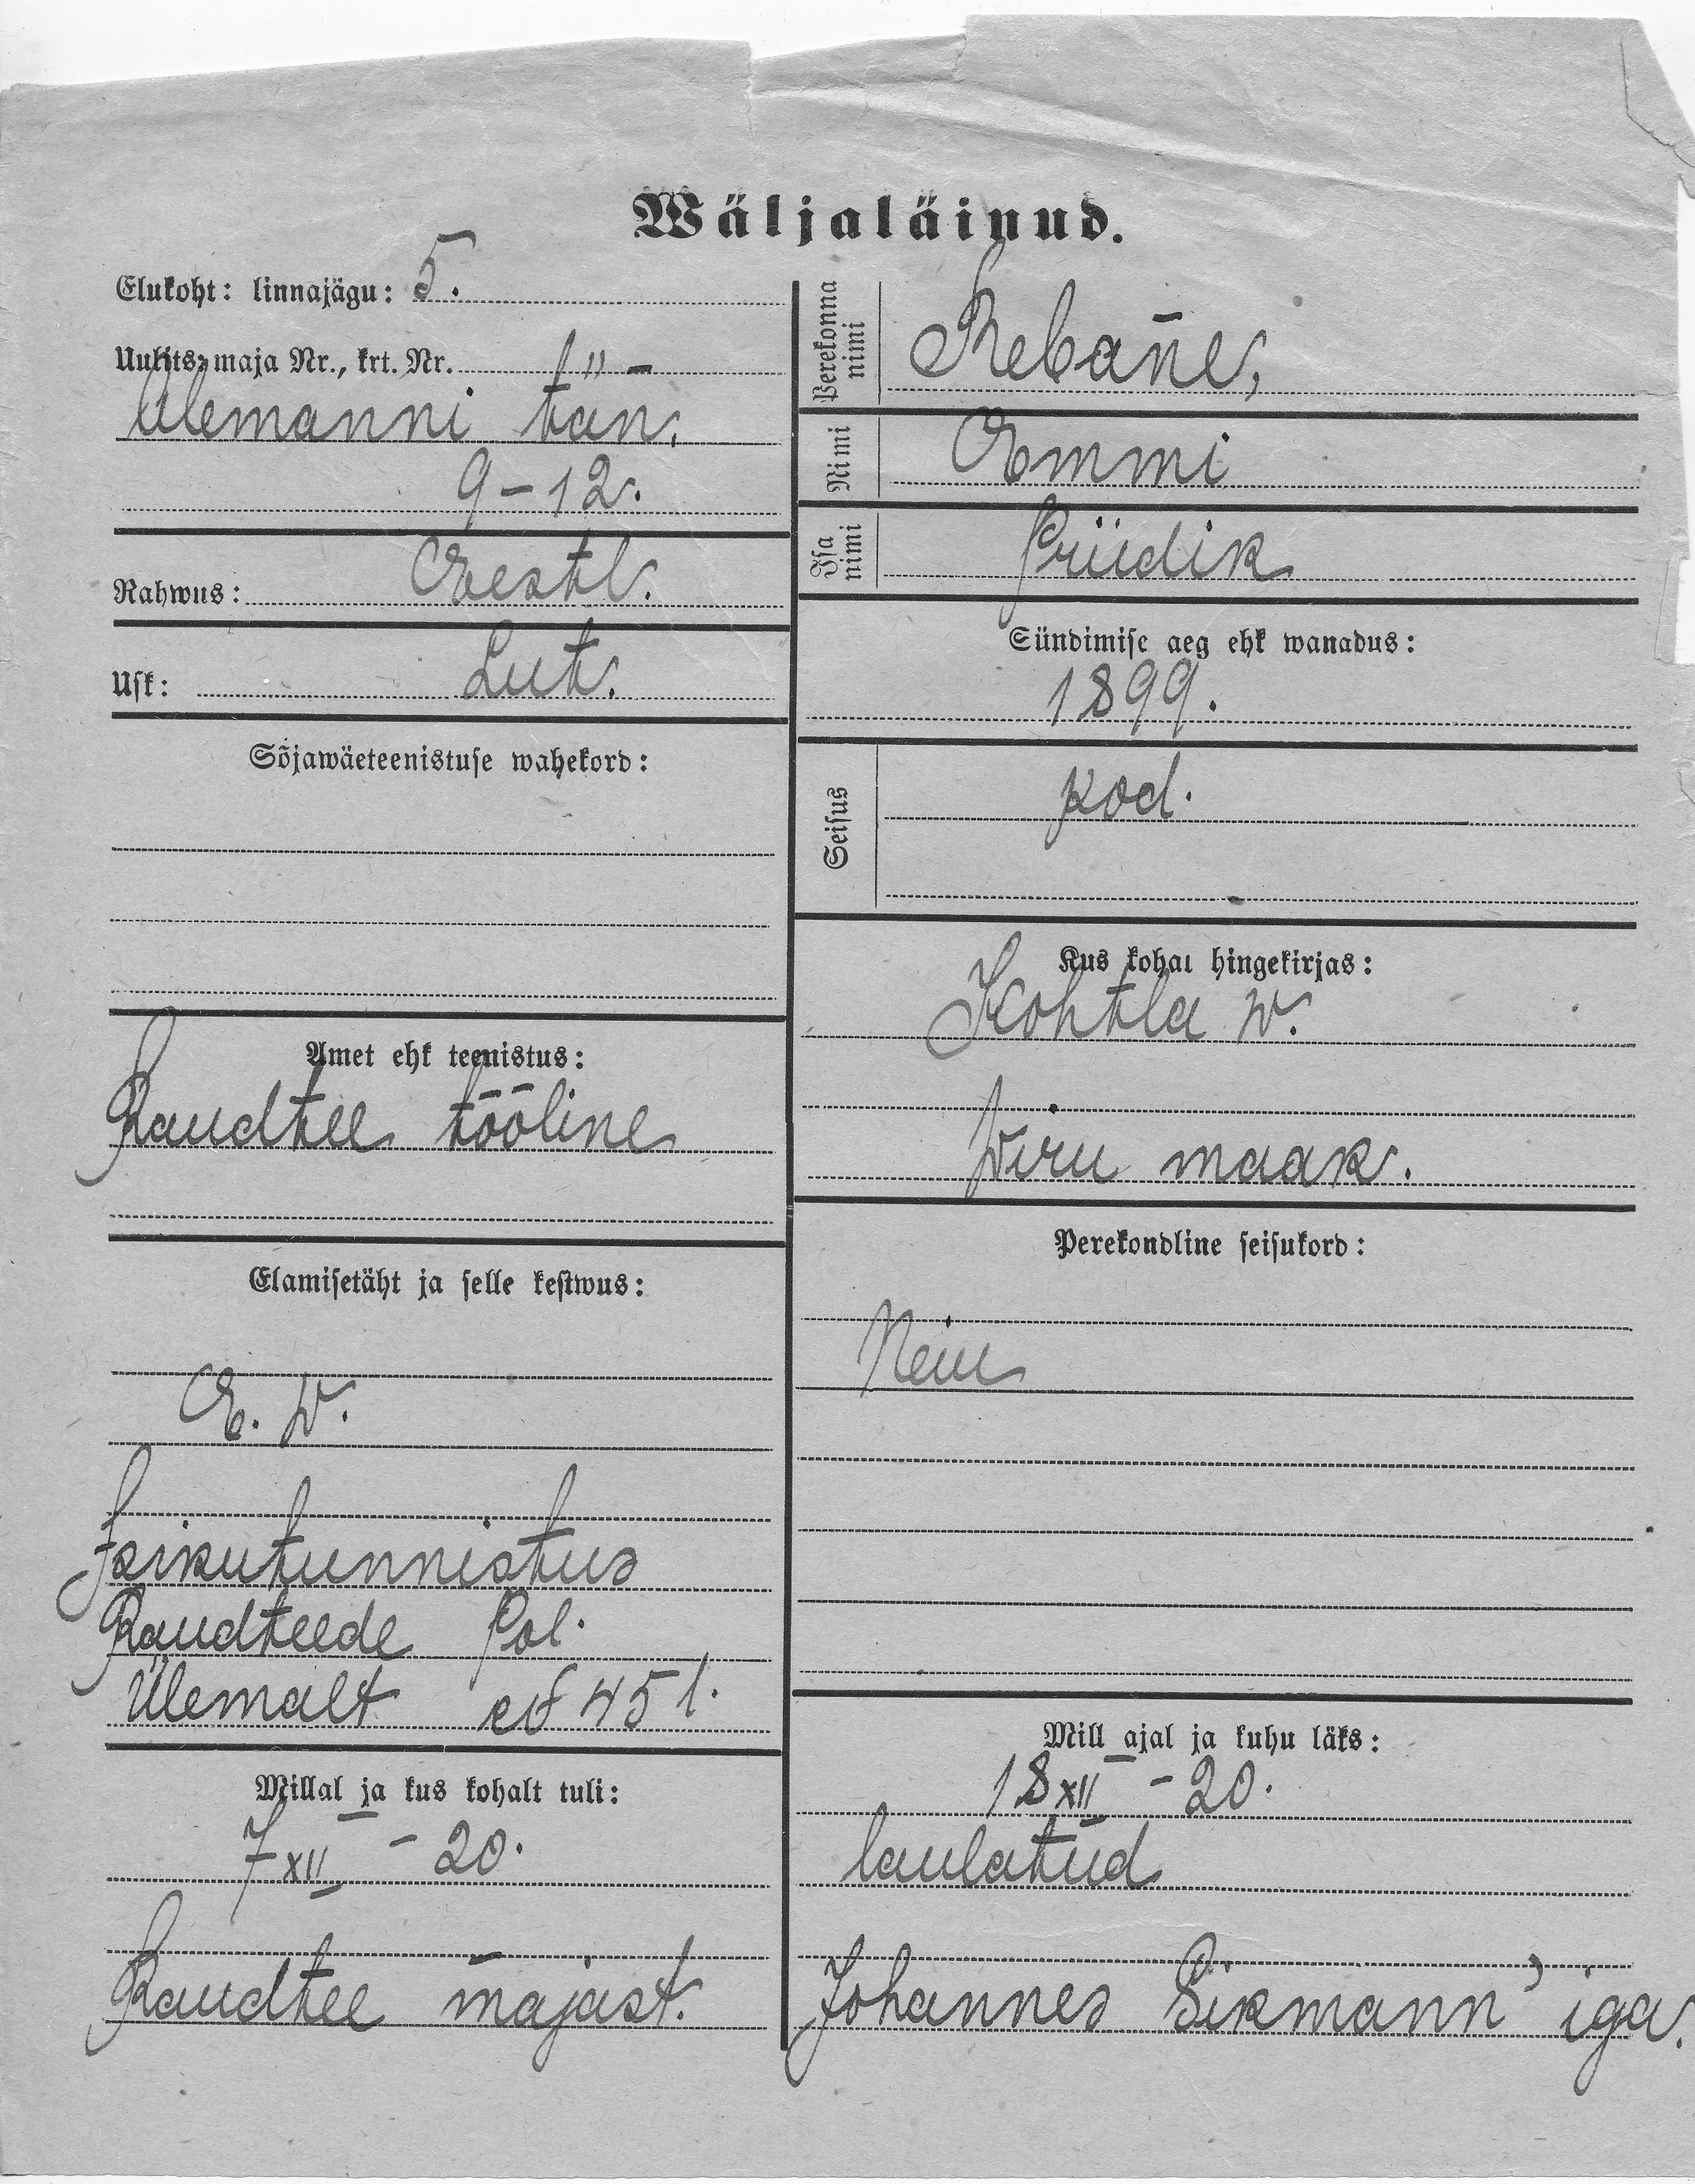 Wäljaläinud.
Elukoht: linnajägu: 5.
Uulits, maja Nr., krt. Nr. 1 " –
Ülemanni tän.
9–12.
Rahwus: Eestl.
Usk: Lut.
Sõjawäeteenistuse wahekord:
Amet ehk teenistus:
Raudtee tööline
Elamisetäht ja selle kestwus:
E. W.
Isikutunnistus
Raudteede Pol.
Ülemalt № 451.
Millal ja kus kohalt tuli:
7 XII – 20.
Raudtee majast.
Perekonna nimi Rebane,
Nimi Emmi
Isa nimi Priidik
Sündimise aeg ehk wanadus:
1899.
Seisus kod.
Kus kohal hingekirjas:
Kohtla w.
Wiru maak.
Perekondline seisukord:
Neiu
Mill ajal ja kuhu läks:
18 XII – 20.
laulatud
Johannes Sikmann'iga.